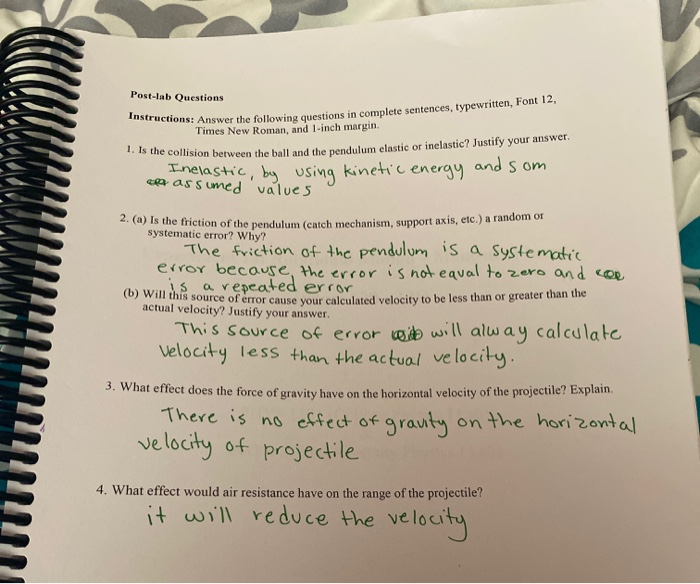 Post-lab Questions
Instructions: Answer the following questions in complete sentences, typewritten, Font 12,
Times New Roman, and 1-inch margin.
1. Is the collision between the ball and the pendulum elastic or inelastic? Justify your answer.
Inelastic, by using kinetic energy and som
assumed values
2. (a) Is the friction of the pendulum (catch mechanism, support axis, etc.) a random or
systematic error? Why?
The friction of the pendulum is a systematic
error because, the error is not equal to zero and
is a repeated error
(b) Will this source of error cause your calculated velocity to be less than or greater than the
actual velocity? Justify your answer.
This source of error will alway calculate
velocity less than the actual velocity.
3. What effect does the force of gravity have on the horizontal velocity of the projectile? Explain.
There is no effect of gravity on the horizontal
velocity of projectile
4. What effect would air resistance have on the range of the projectile?
it will reduce the velocity